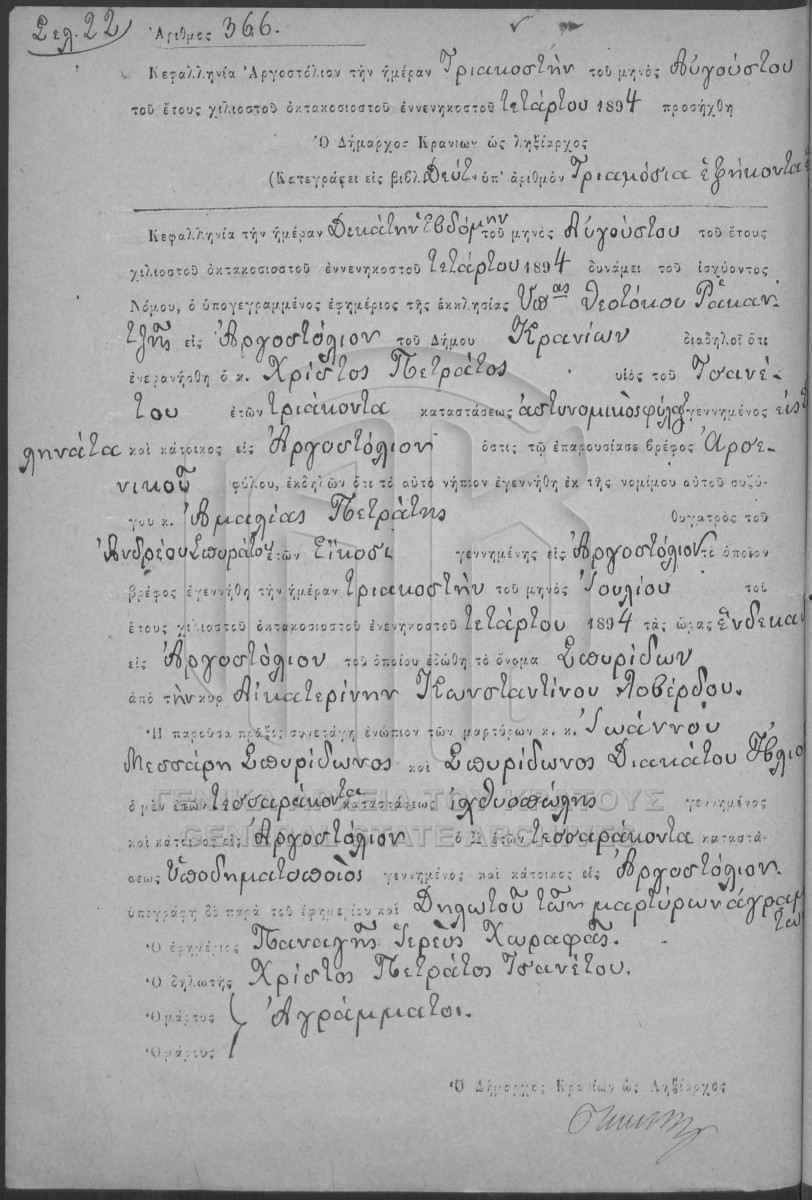 Σελ. 22
Ἀριθμος 366.
Κεφαλληνία Ἀργοστόλιον τὴν ἡμέραν Τριακοστὴν τοῦ μηνὸς Αὐγούστου
τοῦ ἔτους χιλιοστοῦ ὀκτακοσιοστοῦ ἐννενηκοστοῦ τετάρτου 1894 προσήχθη
Ὁ Δήμαρχος Κρανίων ὡς ληξίαρχος
(Κατεγράφει εἰς βιβλ. Δεύτ. ὑπ' ἀριθμὸν Τριακόσια ἑξήκοντα
Κεφαλληνία τὴν ἡμέραν Δεκάτην Ἑβδόμην τοῦ μηνὸς Αὐγούστου τοῦ ἔτους
χιλιοστοῦ ὀκτακοσιοστοῦ ἐννενηκοστοῦ τετάρτου 1894 δυνάμει τοῦ ἰσχύοντος
Νόμου, ὁ ὑπογεγραμμένος ἐφημέριος τῆς ἐκκλησίας Ὑπ ας Θεοτόκου Ρακαν
τζῆς εἰς Ἀργοστόλιον τοῦ Δήμου Κρανίων διαδηλοῖ ὅτι
ἐνεφανήσθη ὁ κ. Χρίστος Πετράτος υἱὸς τοῦ Τσανέ-
του ἐτῶν τριάκοντα καταστάσεως ἀστυνομικὸς φύλαξ γεννημένος εἰς
ληνάτα καὶ κάτοικος εἰς Ἀργοστόλιον ὅστις τῷ ἐπαρουσίασε βρέφος Ἀρσε-
νικοῦ φύλου, ἐκδηλῶν ὅτι τὸ αὐτὸ νήπιον ἐγεννήθη ἐκ τῆς νομίμου αὐτοῦ συζύ-
γου κ. Ἀμαλίας Πετράτης θυγατρὸς τοῦ
Ἀνδρέου Σπυράτου ἐτῶν Εἴκοσι γεννημένης εἰς Ἀργοστόλιον τὸ ὁποῖον
βρέφος ἐγεννήθη τὴν ἡμέραν τριακοστὴν τοῦ μηνὸς Ἰουλίου τοῦ
ἔτους χιλιοστοῦ ὀκτακοσιοστοῦ ἐνενηκοστοῦ τετάρτου 1894 τὰς ὥρας ἕνδεκα
εἰς Ἀργοστόλιον τοῦ ὁποίου ἐδώθη τὸ ὄνομα Σπυρίδων
ἀπὸ τὴν κυρ Αἰκατερίνην Κωνσταντίνου Λοβέρδου.
Ἡ παροῦσα πρᾶξις συνετάγη ἐνώπιον τῶν μαρτύρων κ. κ. Ἰωάννου
Μεσσάρη Σπυρίδωνος καὶ Σπυρίδωνος Διακάτου Ἠλιο
ὁ μὲν ἐτῶν τεσσαράκοντα καταστάσεως ἰχθυοπώλης γεννημένος
καὶ κάτοικος εἰς Ἀργοστόλιον ὁ δὲ ἐτῶν τεσσαράκοντα καταστά-
σεως Ὑποδηματοποιὸς γεννημένος καὶ κάτοικος εἰς Ἀργοστόλιον.
ὑπεγράφη δὲ παρὰ τοῦ ἐφημερίου καὶ Δηλωτοῦ τῶν μαρτύρων ἀγραμ
των
Ὁ ἐφημέριος Παναγῆς Ἱερεὺς Χωραφᾶς.
Ὁ δηλωτὴς Χρίστος Πετράτος Τσανέτου.
Ὁ μάρτυς Ἀγράμματοι.
Ὁ μάρτυς
Ὁ Δήμαρχος Κρανίων ὡς Ληξίαρχος
ΓΕΝΙΚΑ ΑΡΧΕΙΑ ΤΟΥ ΚΡΑΤΟΥΣ
GENERAL STATE ARCHIVES